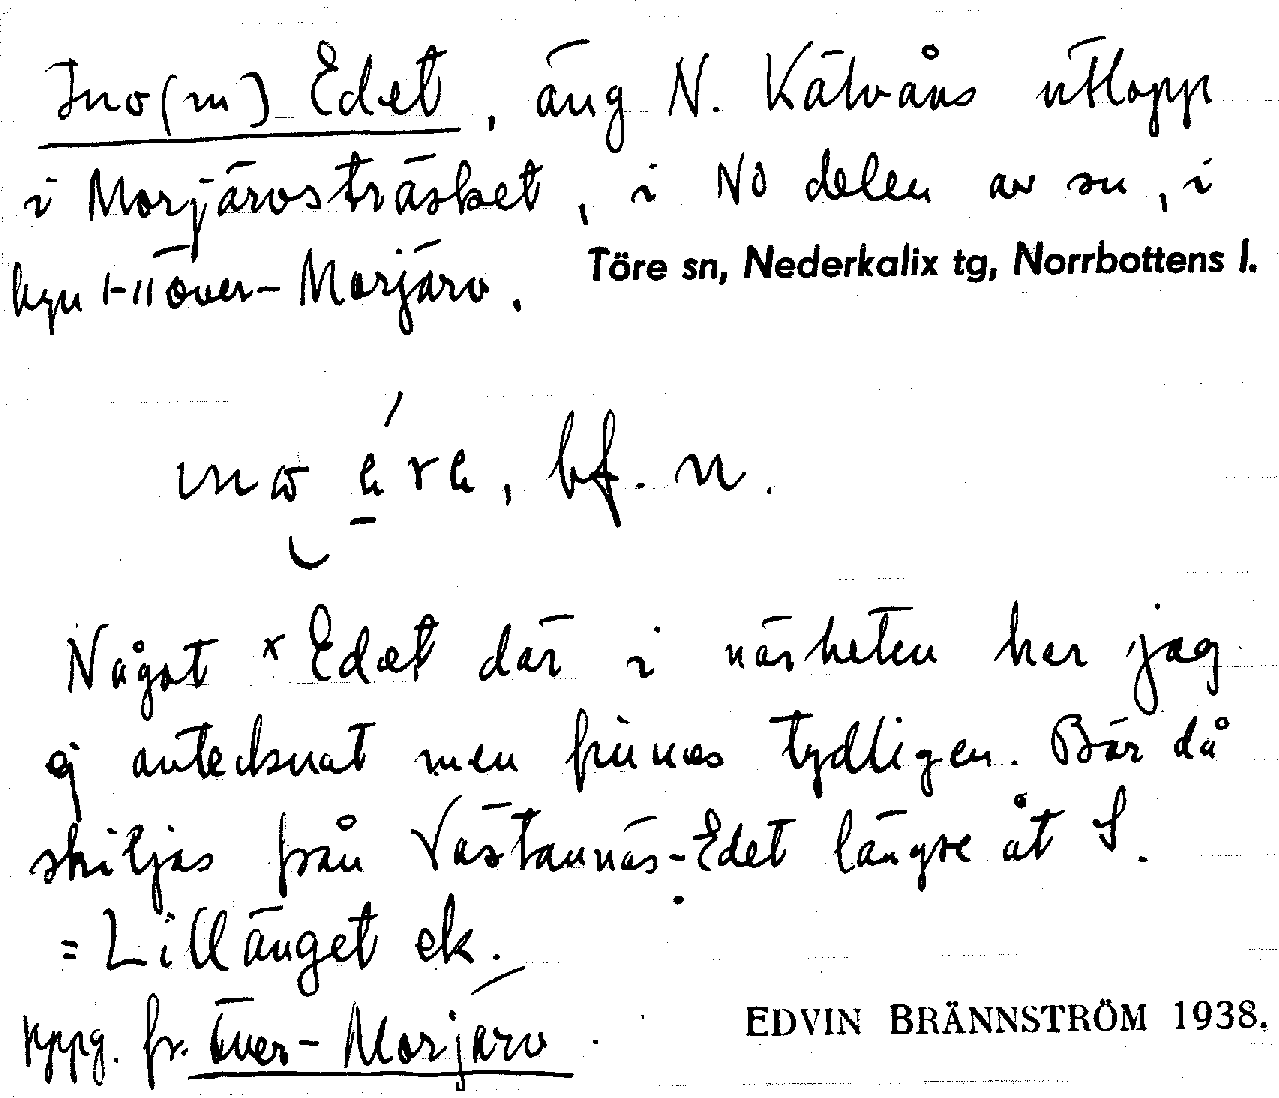 Ino(m) Edet, äng N. Kälvåns utlopp
i Morjärvsträsket, i NO delen av sn, i
byn Över-Morjärv.
Töre sn, Nederkalix tg, Norrbottens l.
bf. n.
Något × Edet där i närheten har jag
ej antecknat men finnes tydligen. Bör då
skiljas från Västannäs-Edet längre åt S.
= Lillänget ek.
uppg. fr. Över-Morjärv.
EDVIN BRÄNNSTRÖM 1938.